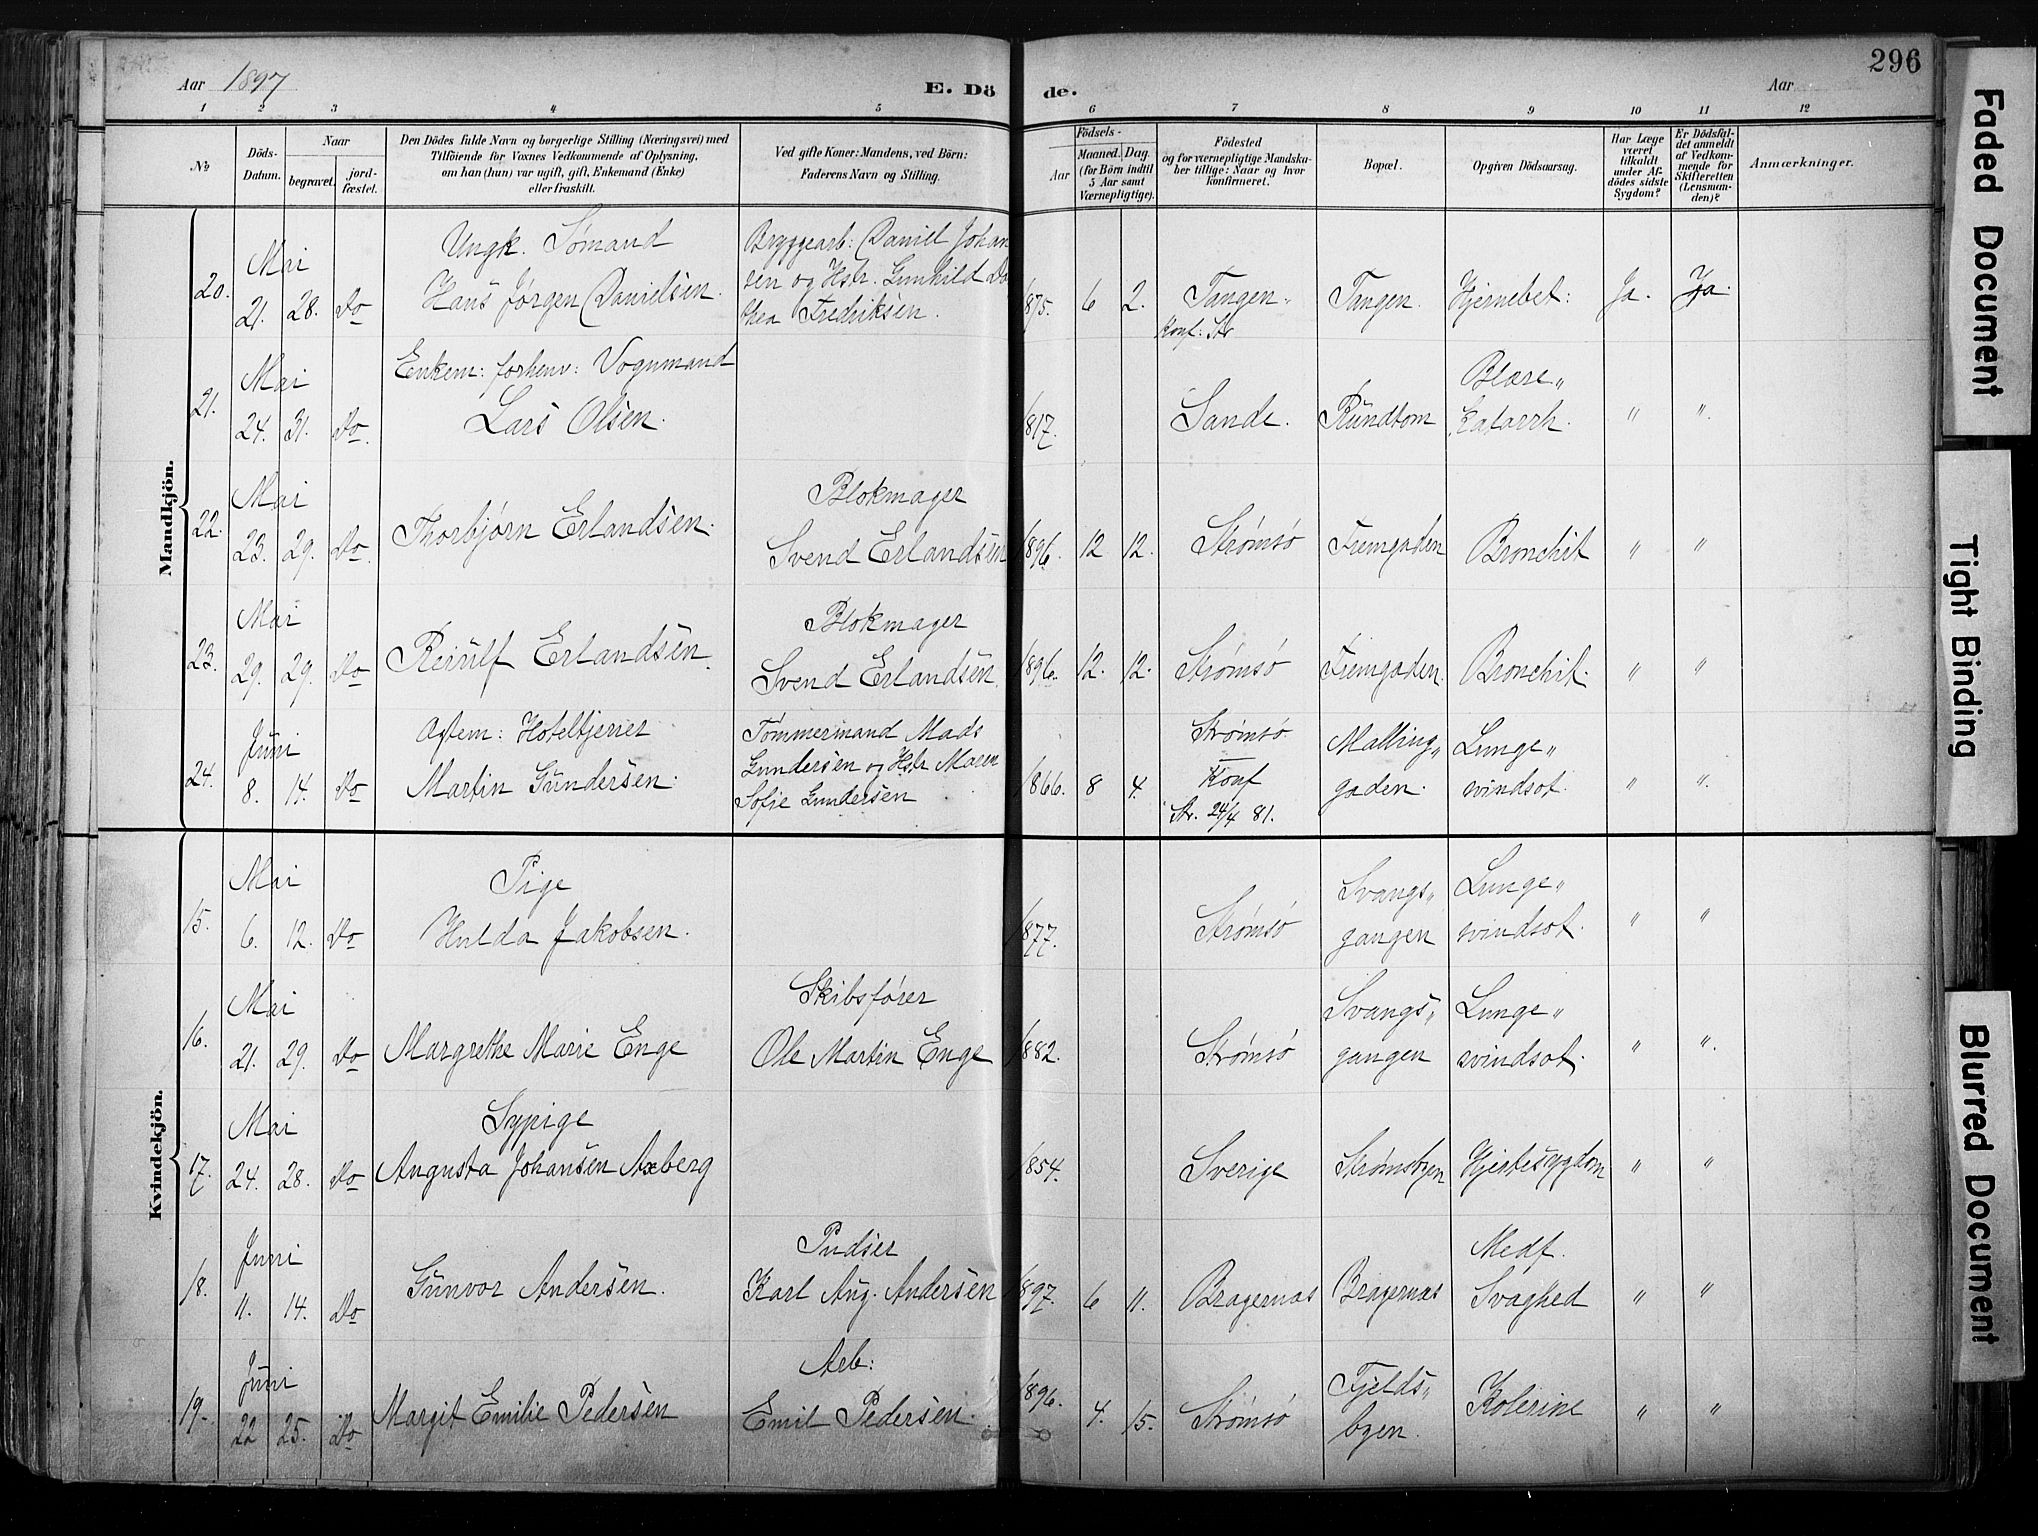 296
Aar 1897
E. Dö
de.
Aar
1 2 3 4 5 6 7 8 9 10 11 12
No
Döds-
Datum.
Naar
begravet.
jord-
fæstet.
Den Dödes fulde Navn og borgerlige Stilling (Næringsvei) med
Tilföiende for Voxnes Vedkommende af Oplysning,
om han (hun) var ugift, gift, Enkemand (Enke)
eller fraskilt.
Ved gifte Koner: Mandens, ved Börn:
Faderens Navn og Stilling.
Födsels-
Aar
Maaned.
Dag
(for Börn indtil
5 Aar samt
Værnepligtige).
Födested
og for værnepligtige Mandska-
ber tillige: Naar og hvor
konfirmeret.
Bopæl.
Opgiven Dödsaarsag.
Har Læge
været
tilkaldt
under Af-
dödes sidste
Sygdom?
Er Dödsfal-
det anmeldt
af Vedkom-
mende for
Skifteretten
(Lensman-
den)?
Anmærkninger.
Mandkjön.
20.
Mai
21. 28. Do
Ungk. Sømand
Hans Jørgen Danielsen.
Bryggearb: Daniel Johan
sen og Hstr. Gunhild Do
thea Fredriksen.
1875. 6 2.
Tangen
Konf: Str.
Tangen.
Hjernebet:
Ja. Ja.
21.
Mai
24. 31. Do.
Enkem: forhenv: Vognmand
Lars Olsen.
1817.
Sande.
Rundtom
Blære„
katarrh.
" "
22.
Mai
23. 29. Do.
Thorbjørn Erlandsen.
Blokmager
Svend Erlandsen
1896. 12 12.
Strømsø
Fremgaden
Bronchit
" "
23.
Mai
29. 29. Do
Reiulf Erlandsen.
Blokmager
Svend Erlandsen.
1896. 12. 12.
Strømsø
Fremgaden.
Bronchit.
" "
24.
Juni
8. 14. Do
Hoteltjener
Martin Gundersen.
Tømmermand Mads
Gundersen og Hstr Maren
Sofie Gundersen
1866. 8 4.
Strømsø
Konf
Str. 24/4 81.
Malling„
gaden.
Lunge„
svindsot.
" "
Kvindekjön.
15.
Mai
6. 12. Do
Pige
Hulda Jakobsen.
1877.
Strømsø
Svangs„
gangen
Lunge„
svindsot.
" "
16.
Mai
21. 29. Do
Margrethe Marie Enge
Skibsfører
Ole Martin Enge
1882.
Strømsø
Svangs„
gangen
Lunge„
svindsot.
" "
17.
Mai
24. 28. Do
Sypige
Augusta Johansen Axberg
1854.
Sverige
Strømsbyen
Hjertesygdom
" "
18.
Juni
11. 14. Do
Gunvor Andersen.
Pudser
Karl Aug. Andersen
1897. 6 11.
Bragernæs
Bragernæs
Medf.
Svaghed
" "
19.
Juni
22 25. Do
Margit Emilie Pedersen
Arb:
Emil Pedersen.
1896. 4. 15.
Strømsø
Fjelds„
byen.
Kolerine
" "
Faded Document
Tight Binding
Blurred Document